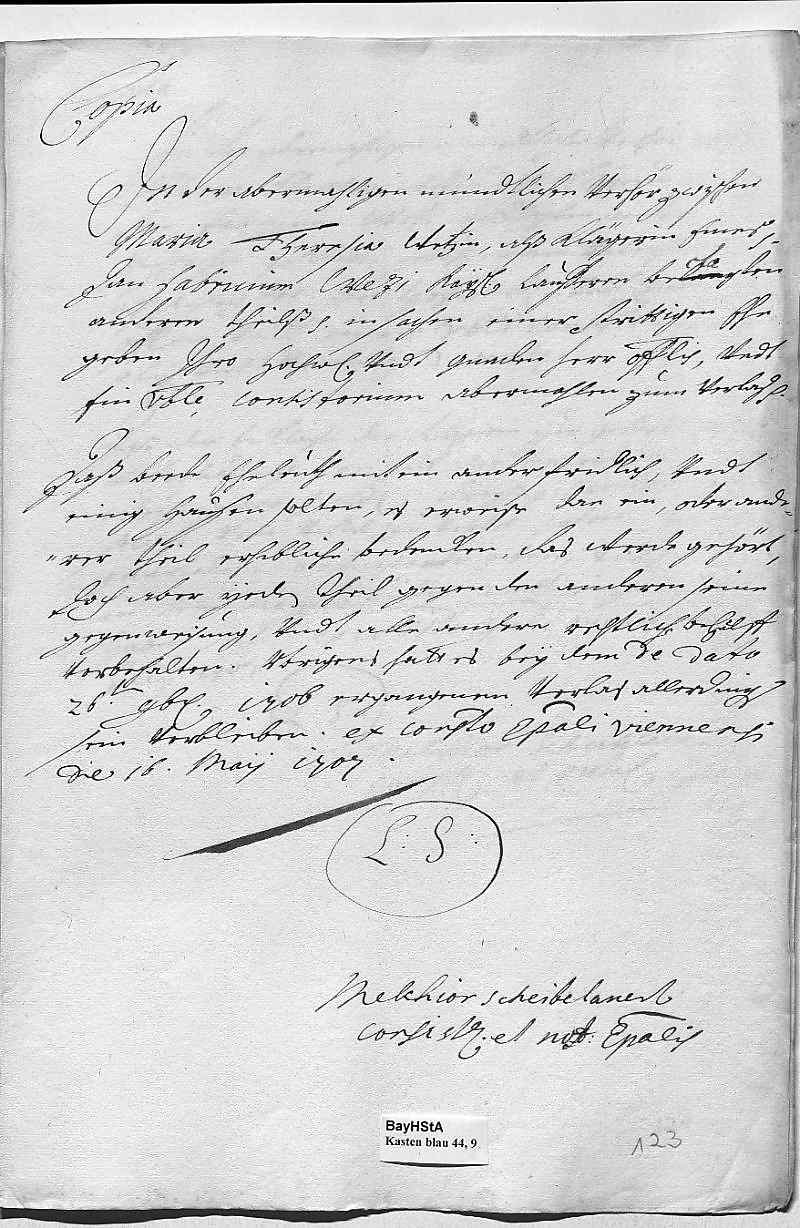 Copia
In der abermahligen mündtlichen Verhör zwischen
Maria Theresia Vetzin, alß Klägerin Eines,
dan Fabricium Vezi Kayl. lauffern beklagten
anderen Theilß p. in sachen einer strittigen Ehe
geben Ihro Hochw. Undt gnaden herr offlis, Undt
Ein Vble Consistorium abermahlen zum Verlaß.
Daß beede Eheleuth mit ein ander fridlich, Undt
einig hausen solten, es erweise dan ein, oder ande-
rer Theil erhebliche bedencken, das werde gehört,
doch aber yeden Theil gegen den anderen seine
gegenweisung, Undt alle andere rechtliche behilff
Vorbehalten. Übrigens hatt es bey dem de dato
26ten 9br. 1706 ergangenen Verlas allerdings
sein Verbleiben. ex Consto Epali viennensi
die 16. Maij 1707.
L: S:
Melchior scheibelauer
Consist. et not: Epalis
BayHStA
Kasten blau 44, 9
123